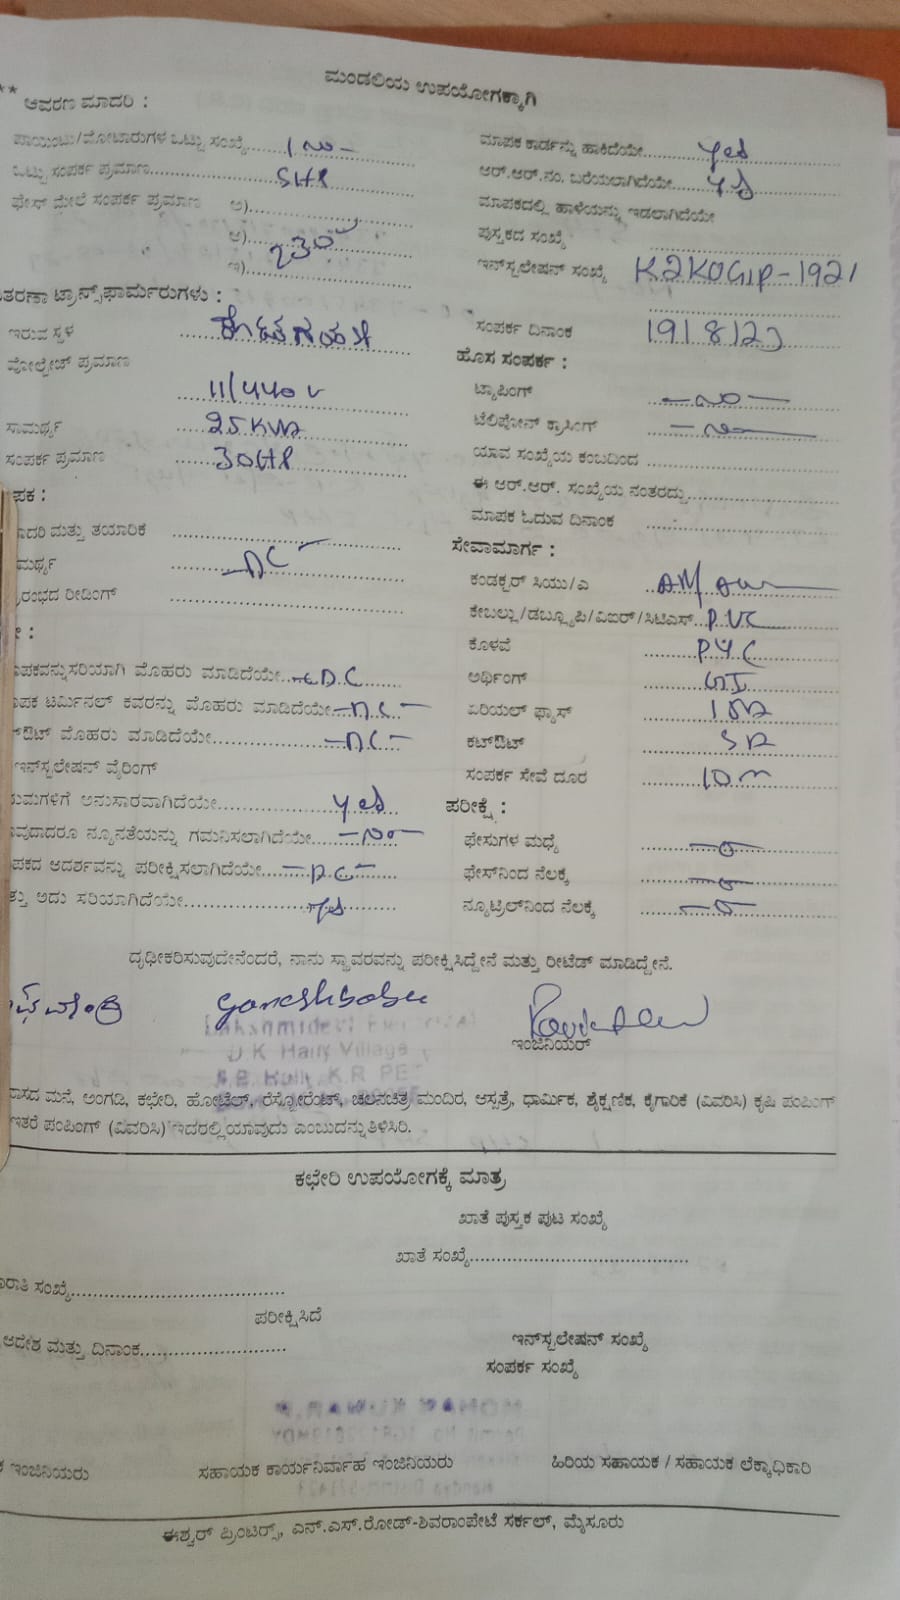 ಮಂಡಲಿಯ ಉಪಯೋಗಕ್ಕಾಗಿ
** ಆವರಣ ಮಾದರಿ :
ಪಾಯಿಂಟು/ಮೋಟಾರುಗಳ ಒಟ್ಟು ಸಂಖ್ಯೆ
ಒಟ್ಟು ಸಂಪರ್ಕ ಪ್ರಮಾಣ 5HP
ಫೇಸ್ ಮೇಲೆ ಸಂಪರ್ಕ ಪ್ರಮಾಣ ಅ)
ಆ) 230
ಇ)
ಟ್ರಾನ್ಸ್‌ಫಾರ್ಮರುಗಳು :
ಇರುವ ಸ್ಥಳ
ವೋಲ್ಟೇಜ್ ಪ್ರಮಾಣ
11/440 V
ಸಾಮರ್ಥ್ಯ 25 KVA
ಸಂಪರ್ಕ ಪ್ರಮಾಣ 30HP
ಮತ್ತು ತಯಾರಿಕೆ
-DC-
ರೀಡಿಂಗ್
ಮೊಹರು ಮಾಡಿದೆಯೇ DC
ಟರ್ಮಿನಲ್ ಕವರನ್ನು ಮೊಹರು ಮಾಡಿದೆಯೇ -DC-
ಮೊಹರು ಮಾಡಿದೆಯೇ -DC-
ಇನ್‌ಸ್ಟಲೇಷನ್ ವೈರಿಂಗ್
ಅನುಸಾರವಾಗಿದೆಯೇ Yes
ನ್ಯೂನತೆಯನ್ನು ಗಮನಿಸಲಾಗಿದೆಯೇ -No-
ಆದರ್ಶವನ್ನು ಪರೀಕ್ಷಿಸಲಾಗಿದೆಯೇ -DC-
ಅದು ಸರಿಯಾಗಿದೆಯೇ Yes
ಮಾಪಕ ಕಾರ್ಡನ್ನು ಹಾಕಿದೆಯೇ Yes
ಆರ್.ಆರ್.ನಂ. ಬರೆಯಲಾಗಿದೆಯೇ Yes
ಮಾಪಕದಲ್ಲಿ ಹಾಳೆಯನ್ನು ಇಡಲಾಗಿದೆಯೇ
ಪುಸ್ತಕದ ಸಂಖ್ಯೆ
ಇನ್‌ಸ್ಟಲೇಷನ್ ಸಂಖ್ಯೆ K2KOGIP-1921
ಸಂಪರ್ಕ ದಿನಾಂಕ
ಹೊಸ ಸಂಪರ್ಕ :
ಟ್ಯಾಪಿಂಗ್ -No-
ಟೆಲಿಪೋನ್ ಕ್ರಾಸಿಂಗ್ -No-
ಯಾವ ಸಂಖ್ಯೆಯ ಕಂಬದಿಂದ
ಈ ಆರ್.ಆರ್. ಸಂಖ್ಯೆಯ ನಂತರದ್ದು
ಮಾಪಕ ಓದುವ ದಿನಾಂಕ
ಸೇವಾಮಾರ್ಗ :
ಕಂಡಕ್ಟರ್ ಸಿಯು/ಎ
ಕೇಬಲ್ಲು/ಡಬ್ಲ್ಯೂಪಿ/ವಿಐಆರ್/ಸಿಟಿಎಸ್ PVC
ಕೊಳವೆ PVC
ಅರ್ಥಿಂಗ್ GI
ಏರಿಯಲ್ ಫ್ಯೂಸ್ 15A
ಕಟ್‌ಔಟ್ 5A
ಸಂಪರ್ಕ ಸೇವೆ ದೂರ 10 m
ಪರೀಕ್ಷೆ :
ಫೇಸುಗಳ ಮಧ್ಯೆ -0-
ಫೇಸ್‌ನಿಂದ ನೆಲಕ್ಕೆ -0-
ನ್ಯೂಟ್ರಿಲ್‌ನಿಂದ ನೆಲಕ್ಕೆ -0-
ದೃಢೀಕರಿಸುವುದೇನೆಂದರೆ, ನಾನು ಸ್ಥಾವರವನ್ನು ಪರೀಕ್ಷಿಸಿದ್ದೇನೆ ಮತ್ತು ರೀಟೆಡ್ ಮಾಡಿದ್ದೇನೆ.
Ganeshbabu
ಇಂಜಿನಿಯರ್
ಮನೆ, ಅಂಗಡಿ, ಕಛೇರಿ, ಹೋಟೆಲ್, ರೆಸ್ಟೋರೆಂಟ್, ಚಲನಚಿತ್ರ ಮಂದಿರ, ಆಸ್ಪತ್ರೆ, ಧಾರ್ಮಿಕ, ಶೈಕ್ಷಣಿಕ, ಕೈಗಾರಿಕೆ (ವಿವರಿಸಿ) ಕೃಷಿ ಪಂಪಿಂಗ್
ಇತರೆ ಪಂಪಿಂಗ್ (ವಿವರಿಸಿ) ಇದರಲ್ಲಿ ಯಾವುದು ಎಂಬುದನ್ನು ತಿಳಿಸಿರಿ.
ಕಛೇರಿ ಉಪಯೋಗಕ್ಕೆ ಮಾತ್ರ
ಖಾತೆ ಪುಸ್ತಕ ಪುಟ ಸಂಖ್ಯೆ
ಖಾತೆ ಸಂಖ್ಯೆ
ಸಂಖ್ಯೆ
ಪರೀಕ್ಷಿಸಿದೆ
ಆದೇಶ ಮತ್ತು ದಿನಾಂಕ
ಇನ್‌ಸ್ಟಲೇಷನ್ ಸಂಖ್ಯೆ
ಸಂಪರ್ಕ ಸಂಖ್ಯೆ
ಇಂಜಿನಿಯರು ಸಹಾಯಕ ಕಾರ್ಯನಿರ್ವಾಹ ಇಂಜಿನಿಯರು ಹಿರಿಯ ಸಹಾಯಕ / ಸಹಾಯಕ ಲೆಕ್ಕಾಧಿಕಾರಿ
ಈಶ್ವರ್ ಪ್ರಿಂಟರ್ಸ್, ಎನ್.ಎಸ್.ರೋಡ್-ಶಿವರಾಂಪೇಟೆ ಸರ್ಕಲ್, ಮೈಸೂರು